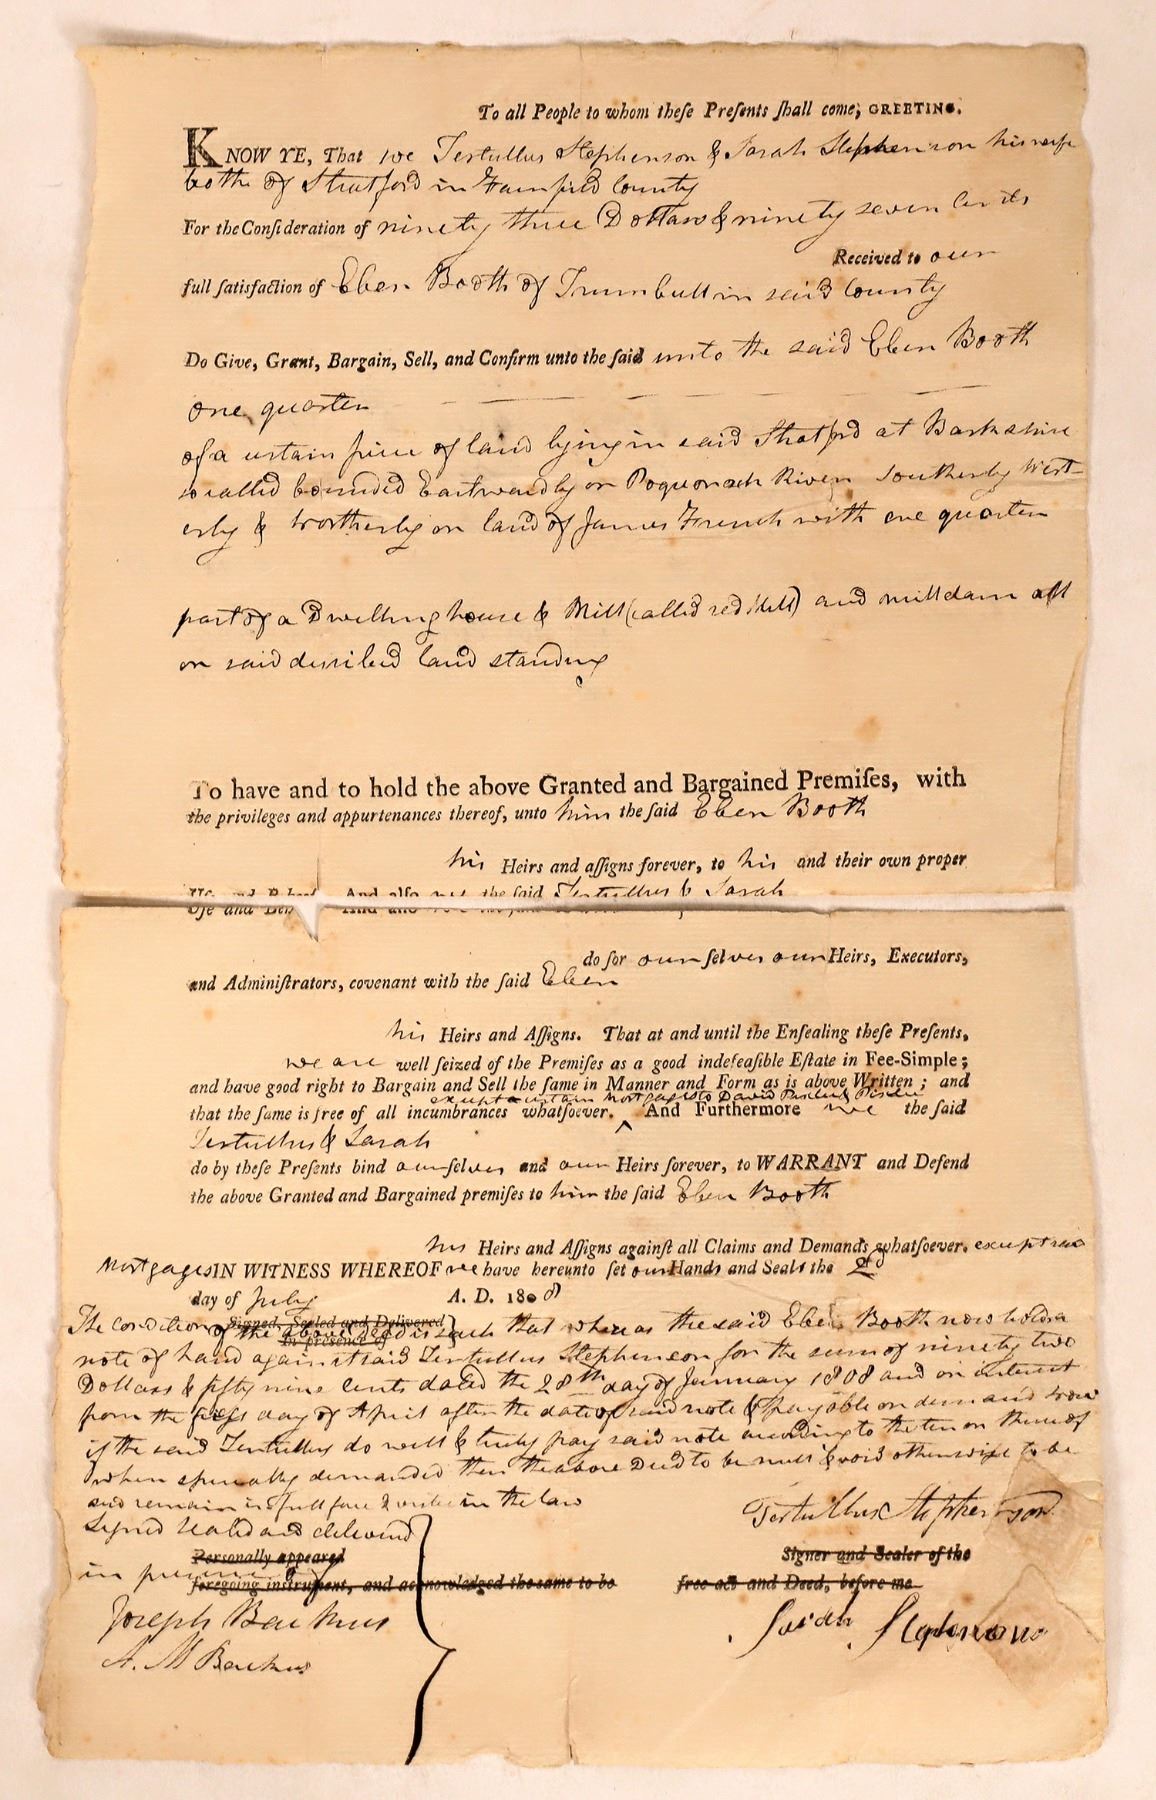 To all People to whom theſe Preſents ſhall come, GREETING.
KNOW YE, That we Tertullus Stephenson & Sarah Stephenson his wife
bothe of Stratford in Fairfield County
For the Conſideration of ninety three Dollars & ninety seven Cents
Received to our
full ſatisfaction of Eben Booth of Trumbull in said County
Do Give, Grant, Bargain, Sell, and Confirm unto the ſaid unto the said Eben Booth
one quarter
of a certain piece of land lying in said Stratford at Barkshire
so called bounded Eastwardly on Poquonock River Southerly West-
erly & Northerly on land of James French with one quarter
part of a Dwelling house & Mill (called red Mill) and milldam all
on said described land standing
To have and to hold the above Granted and Bargained Premiſes, with
the privileges and appurtenances thereof, unto him the ſaid Eben Booth
his Heirs and aſſigns forever, to his and their own proper
Uſe and Behoof And alſo we the ſaid Tertullus & Sarah
do for ourſelves our Heirs, Executors,
and Adminiſtrators, covenant with the ſaid Eben
his Heirs and Aſſigns. That at and until the Enſealing theſe Preſents,
we are well ſeized of the Premiſes as a good indefeaſible Eſtate in Fee-Simple;
and have good right to Bargain and Sell the ſame in Manner and Form as is above Written; and
except a certain Mortgage to David
that the ſame is free of all incumbrances whatſoever. ^ And Furthermore we the ſaid
Tertullus & Sarah
do by theſe Preſents bind ourſelves and our Heirs forever, to WARRANT and Defend
the above Granted and Bargained premiſes to him the ſaid Eben Booth
his Heirs and Aſſigns againſt all Claims and Demands whatſoever. except said
Mortgages IN WITNESS WHEREOF we have hereunto ſet our Hands and Seals the 2d
day of July A. D. 1808
Signed, Sealed and Delivered
in preſence of
The condition of the above Deed is such that whereas the said Eben Booth now holds a
note of hand against said Tertullus Stephenson for the sum of ninety two
Dollars & fifty nine Cents dated the 28th day of January 1808 and on interest
from the first day of April after the date of said note & payable on demand now
if the said Tertullus do well & truly pay said note according to the tenor thereof
when specially demanded then the above Deed to be null & void otherwise to be
and remain in full force & virtue in the law
Signed Sealed and delivered
in presence of
Tertullus Stephenson
Perſonally appeared Signer and Sealer of the
foregoing inſtrument, and acknowledged the ſame to be free act and Deed, before me
Joseph Backus
Sarah Stephenson
A. M Backus